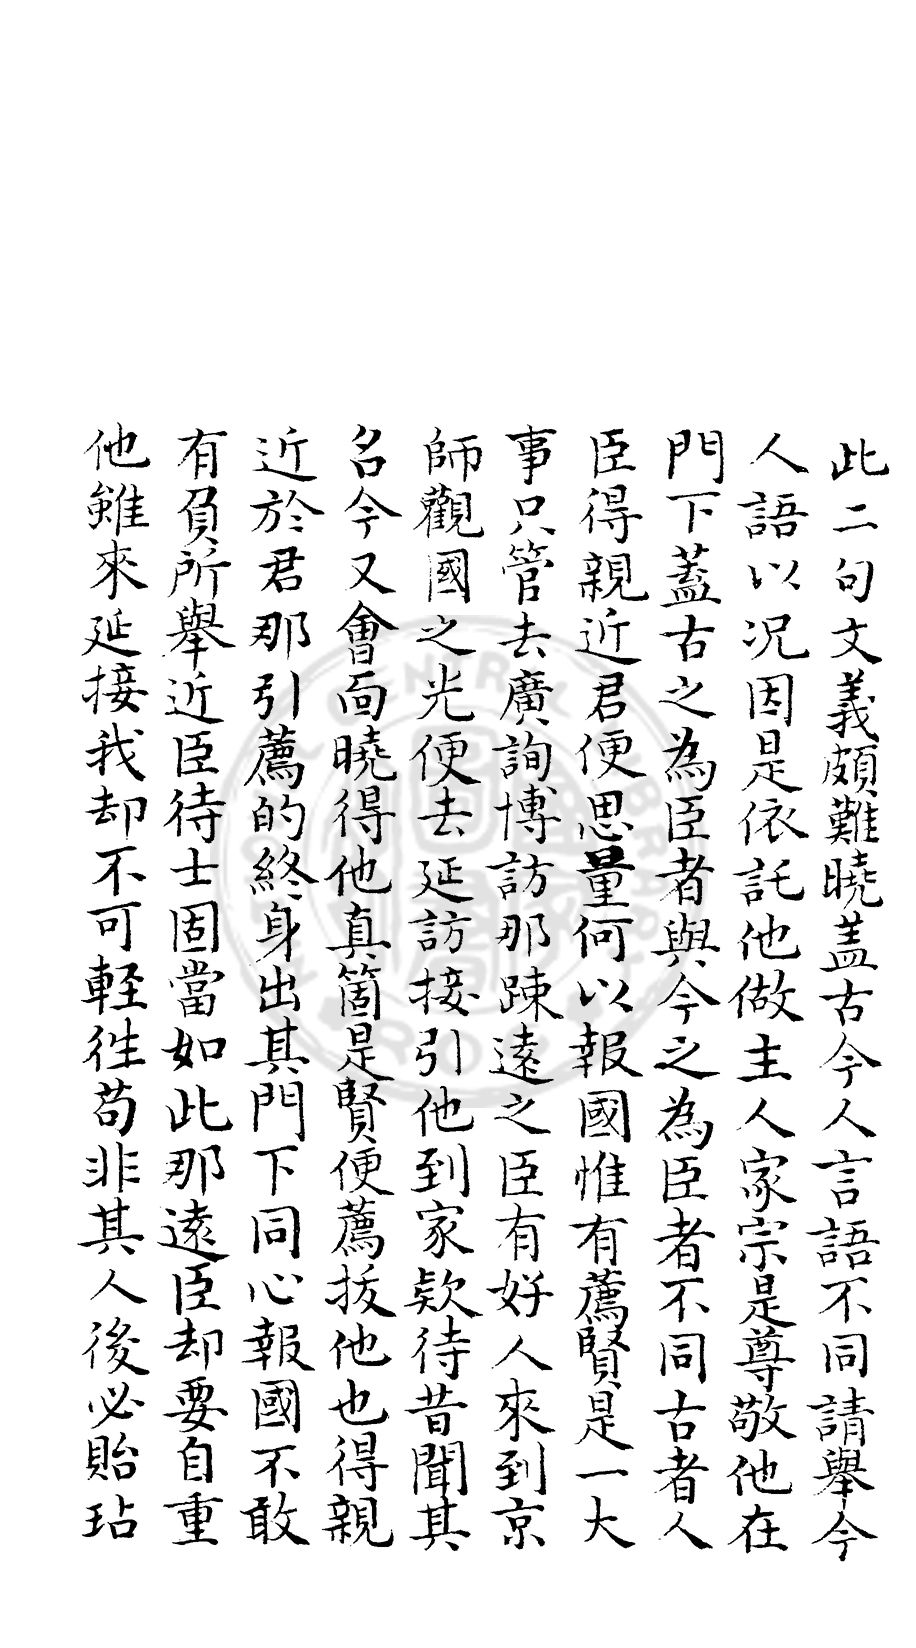 此二句文義頗難曉蓋古今人言語不同請舉今
人語以况因是依託他做主人家宗是尊敬他在
門下蓋古之為臣者與今之為臣者不同古者人
臣得親近君便思量何以報國惟有薦賢是一大
事只管去廣詢博訪那踈遠之臣有好人來到京
師觀國之光便去延訪接引他到家欵待昔聞其
名今又會面曉得他真箇是賢便薦拔他也得親
近於君那引薦的終身出其門下同心報國不敢
有負所舉近臣待士固當如此那遠臣却要自重
他雖來延接我却不可輕徃苟非其人後必貽玷